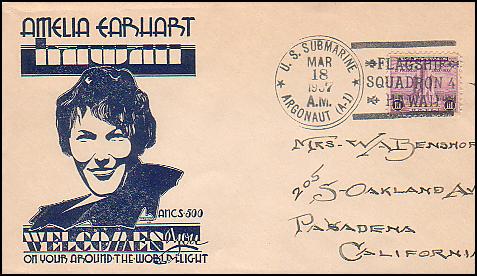 AMELIA EARHART
HAWAII
ANCS-500
WELCOMES You
ON YOUR AROUND-THE-WORLD-FLIGHT
U. S. SUBMARINE
MAR
18
1937
A.M.
ARGONAUT (A-1)
FLAGSHIP
SQUADRON 4
HAWAII
MRS-W.A.BENSHOF
205 S-OAKLAND AV
PASADENA
CALIFORNIA